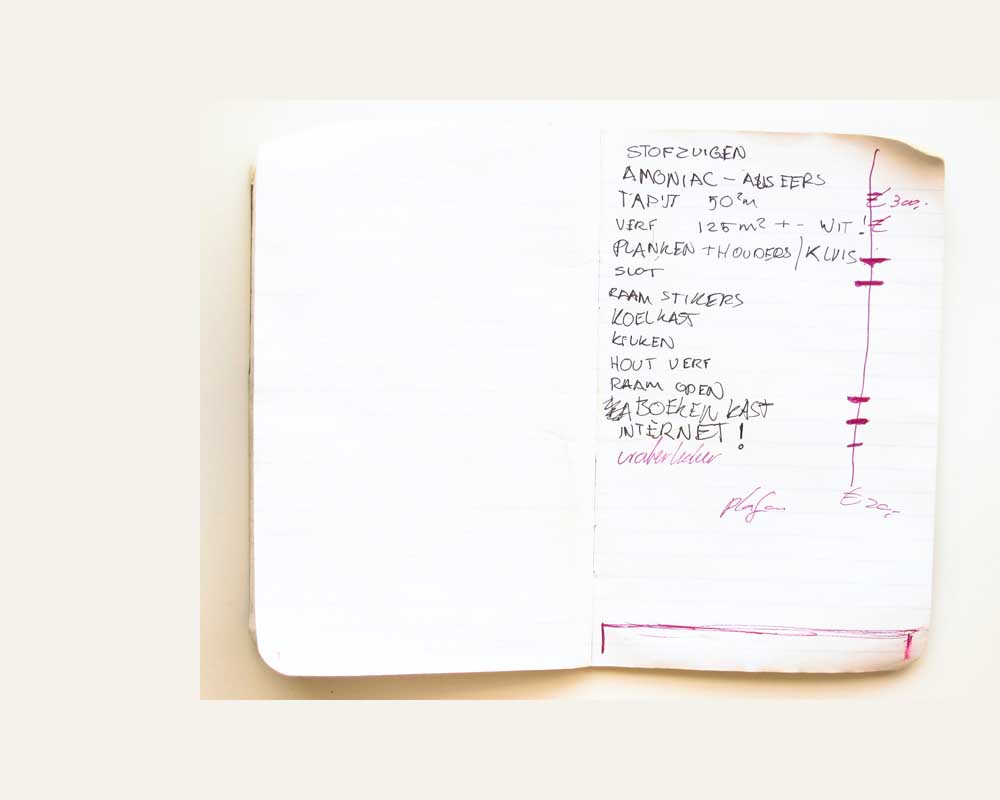 STOFZUIGEN
AMONIAC -
TAPIJT 50²m € 300,-
VERF 125m² +- WIT! €
PLANKEN + HOUDERS/KLUIS
SLOT
RAAM STIKERS
KOELKAST
KEUKEN
HOUT VERF
RAAM OPEN
BOEKEN KAST
INTERNET!
plafon € 20,-